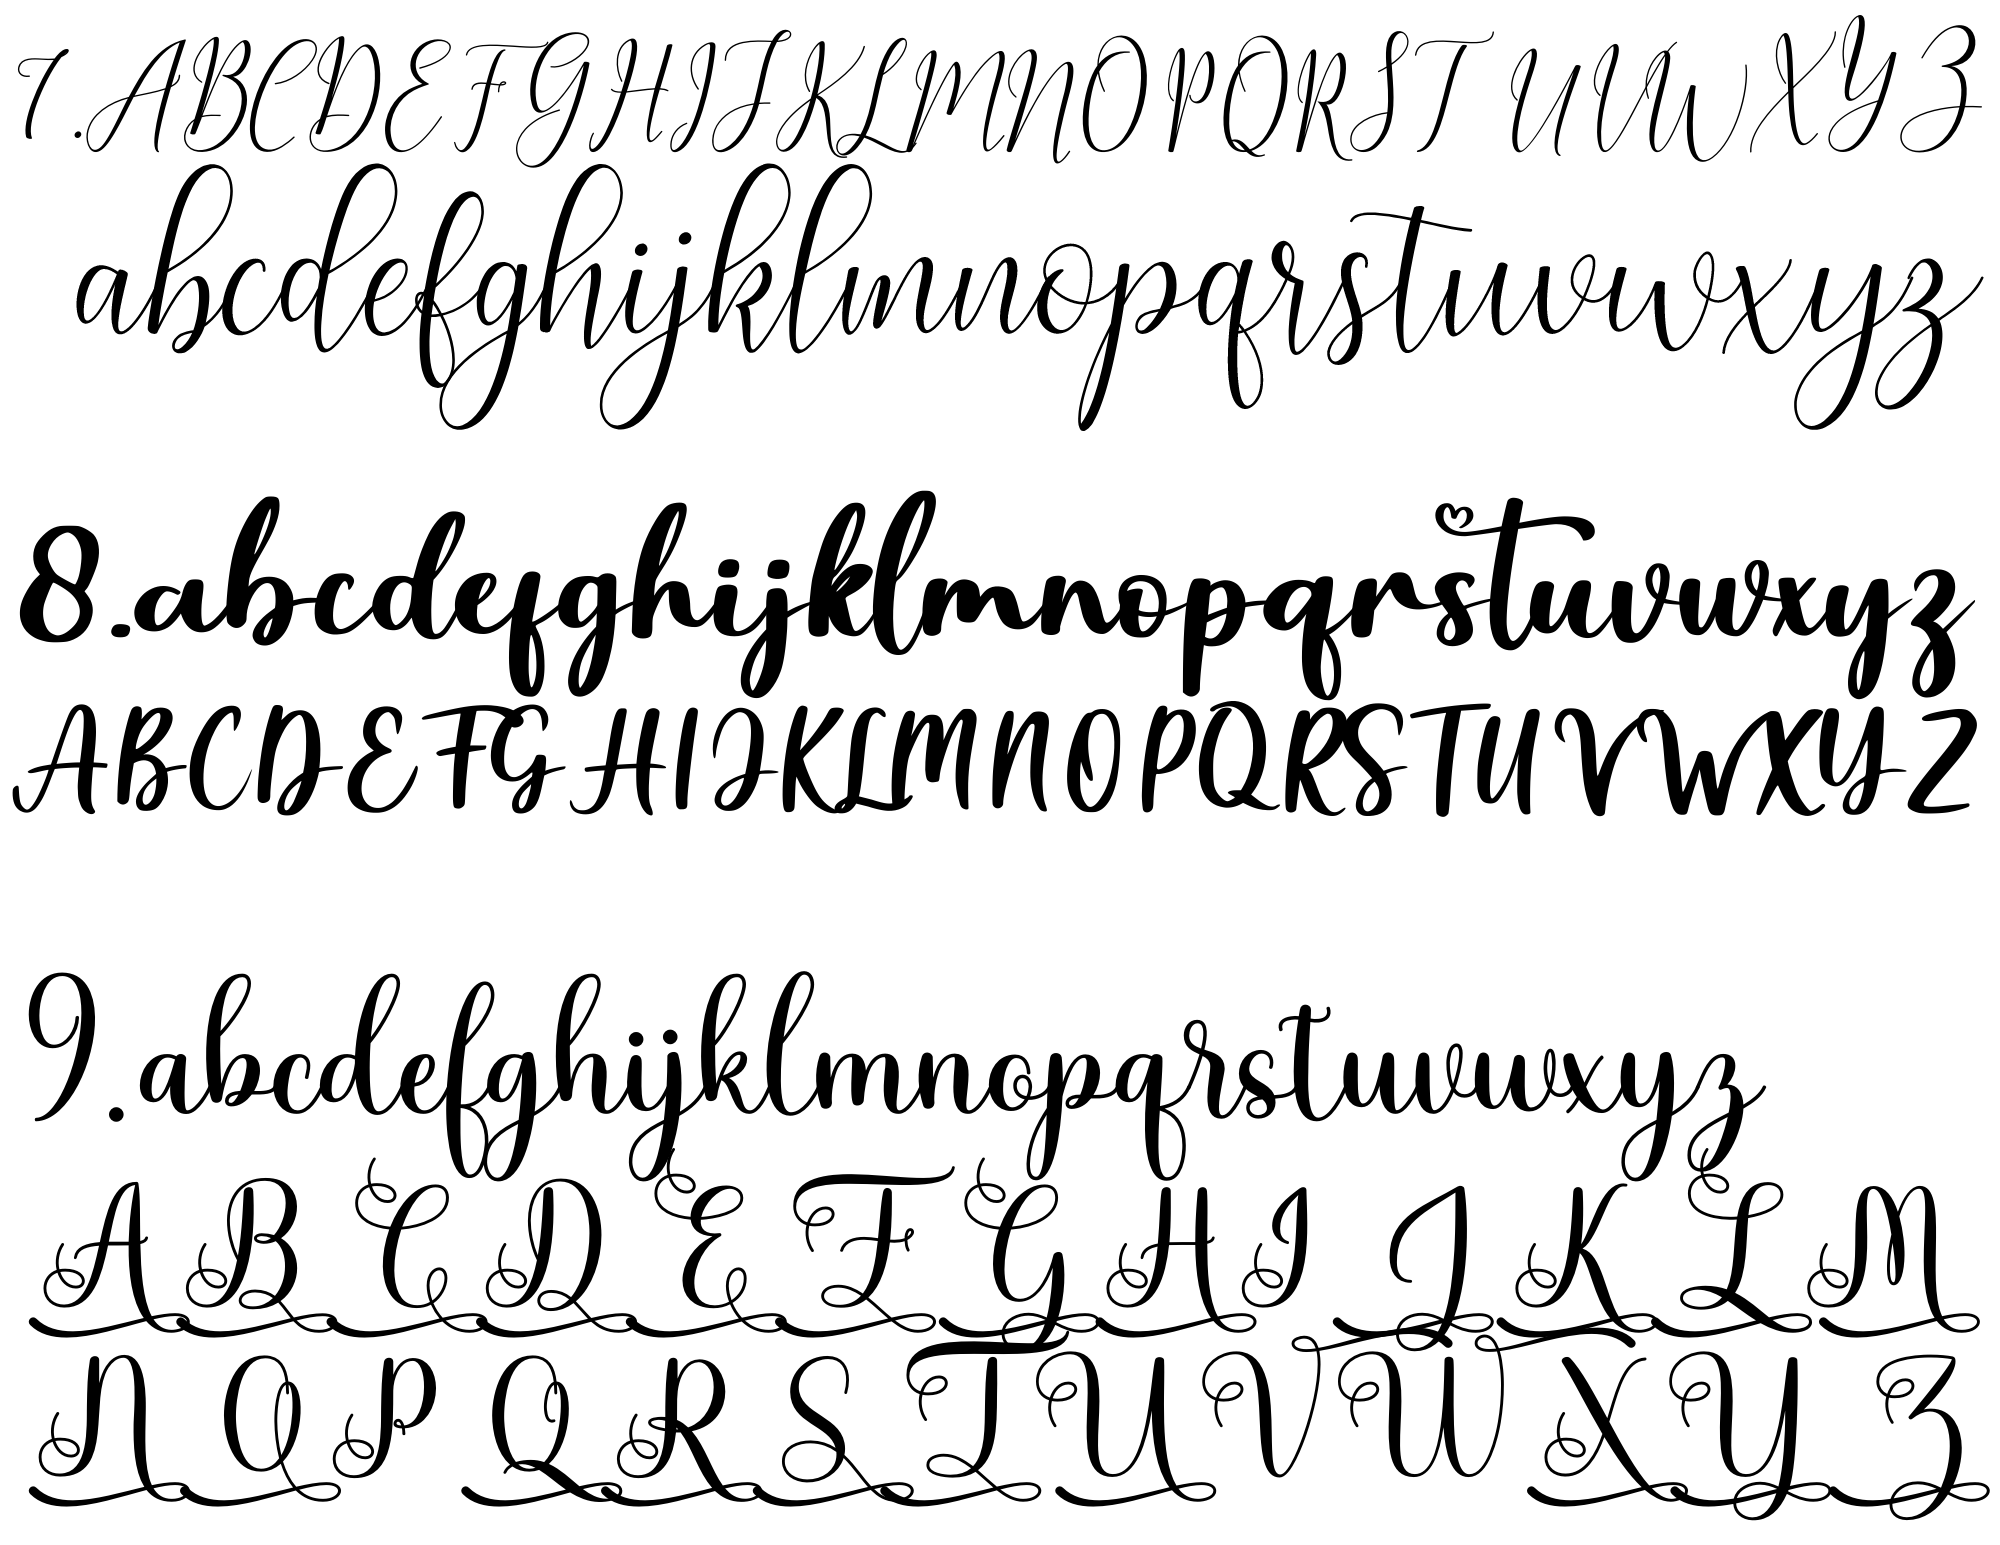 7. ABCDEFGHIJKLMNOPQRSTUVWXYZ
abcdefghijklmnopqrstuvwxyz
8. abcdefghijklmnopqrstuvwxyz
ABCDEFGHIJKLMNOPQRSTUVWXYZ
9. abcdefghijklmnopqrstuvwxyz
ABCDEFGHIJKLM
NOPQRSTUVWXYZ